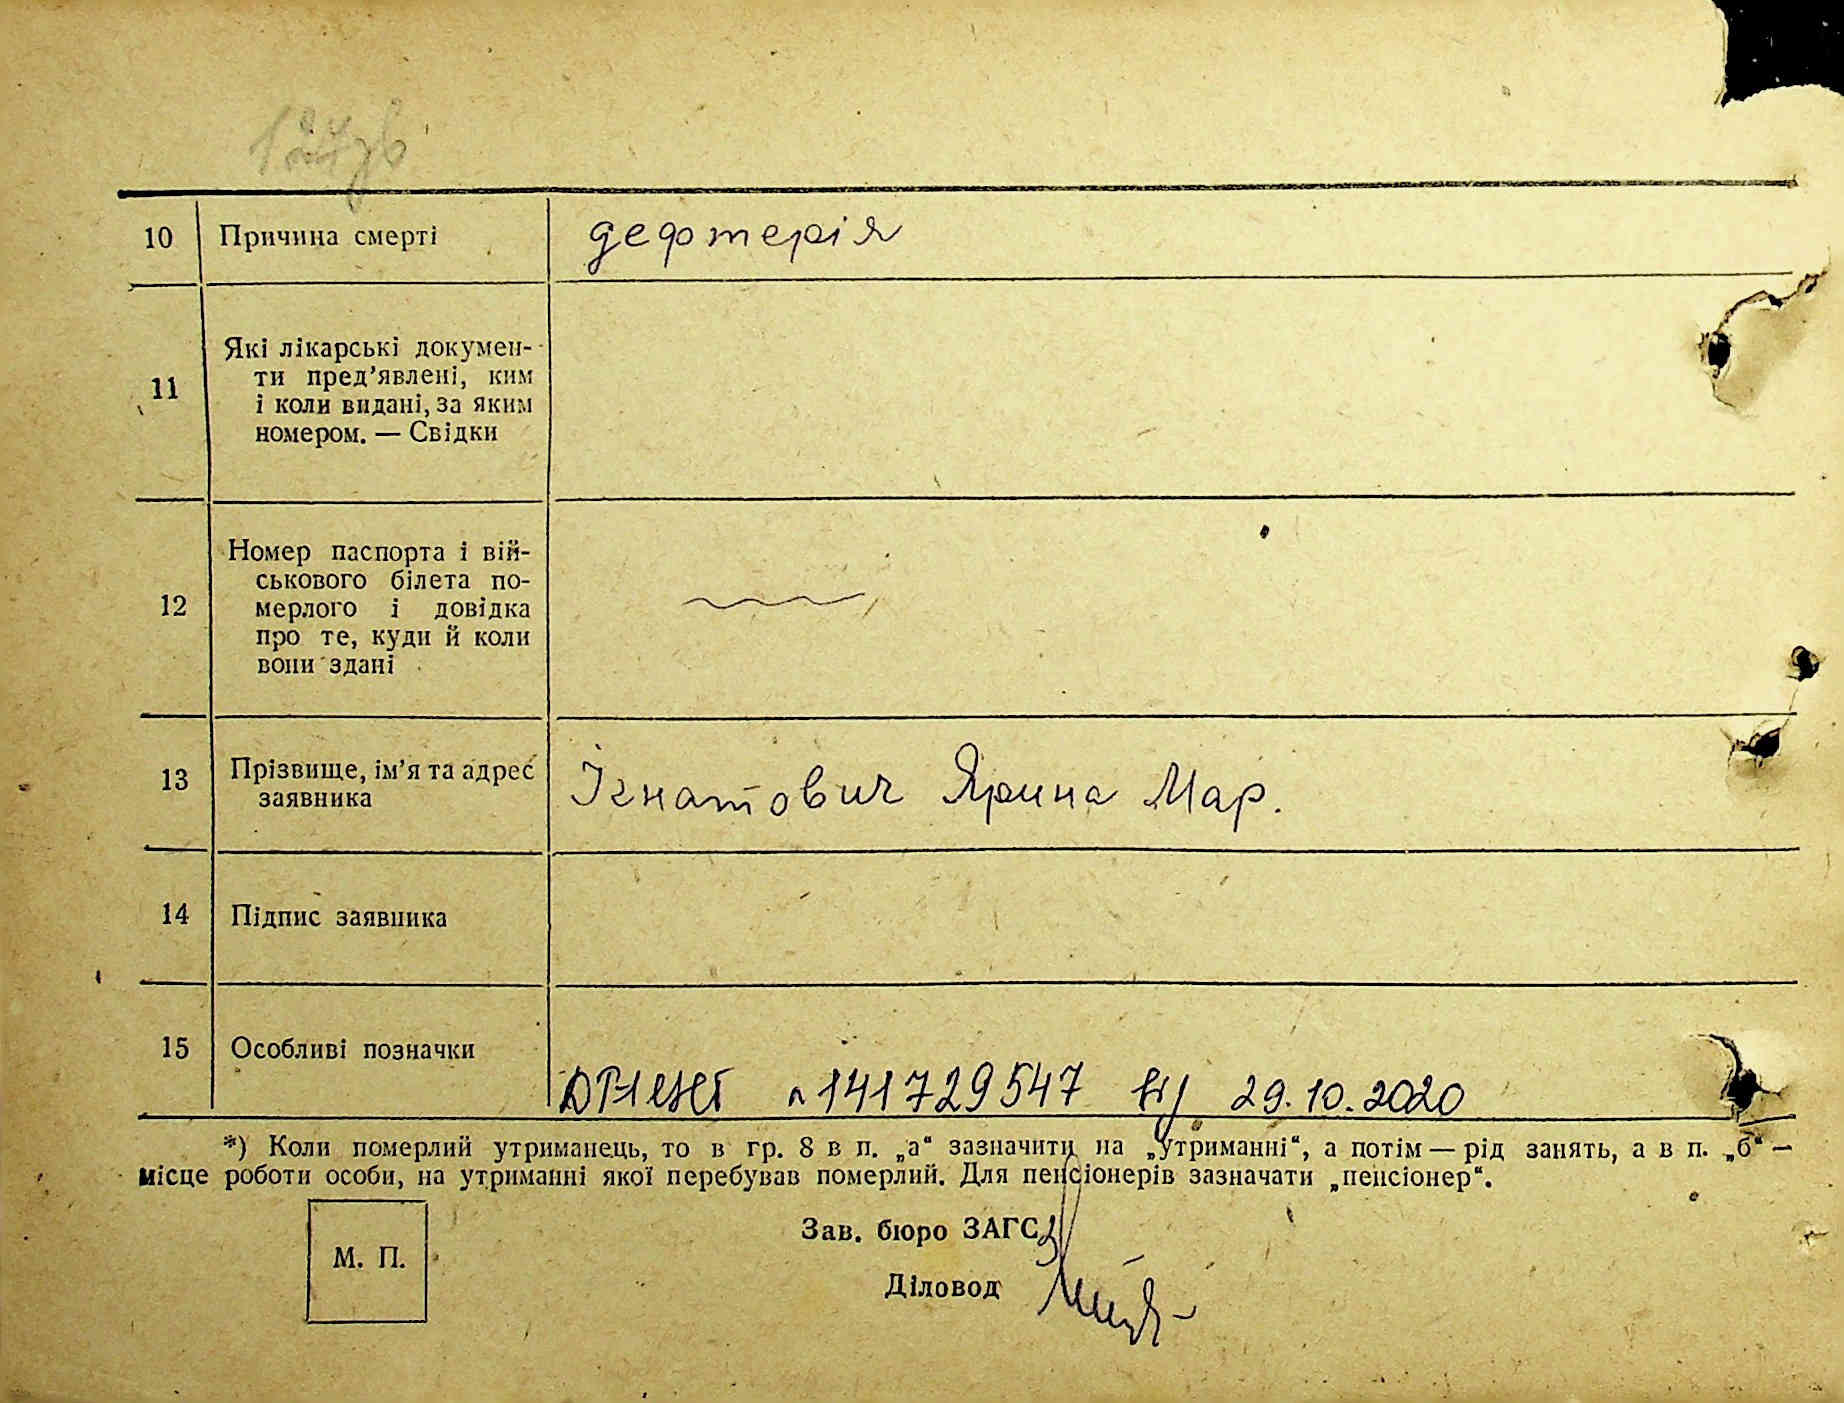 10 Причина смерті дефтерія
11 Які лікарські докумен-
ти пред’явлені, ким
і коли видані, за яким
номером. — Свідки
12 Номер паспорта і вій-
ськового білета по-
мерлого і довідка
про те, куди й коли
вони здані
13 Прізвище, ім’я та адрес
заявника
Ігнатович Ярина Мар.
14 Підпис заявника
15 Особливі позначки
141729547 29.10.2020
*) Коли померлий утриманець, то в гр. 8 в п. „а“ зазначити на „утриманні“, а потім — рід занять, а в п. „б“ —
місце роботи особи, на утриманні якої перебував померлий. Для пенсіонерів зазначати „пенсіонер“.
Зав. бюро ЗАГС
М. П.
Діловод